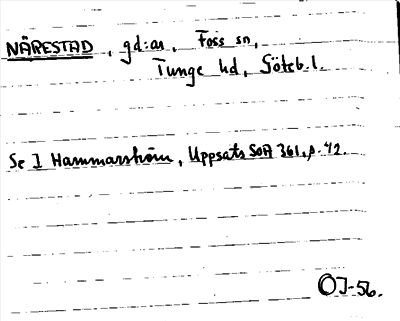 NÄRESTAD, gd:ar, Foss sn,
Tunge hd, Göteb.l.
Se I Hammarström, Uppsats SOA 361, p. 42.
OJ-56.